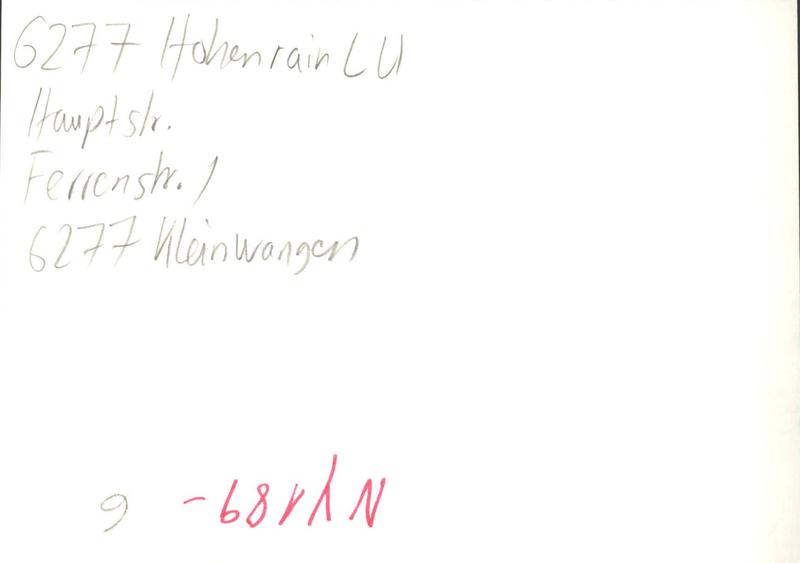 6277 Hohenrain LU
Hauptstr.
Ferrenstr. 1
6277 Kleinwangen